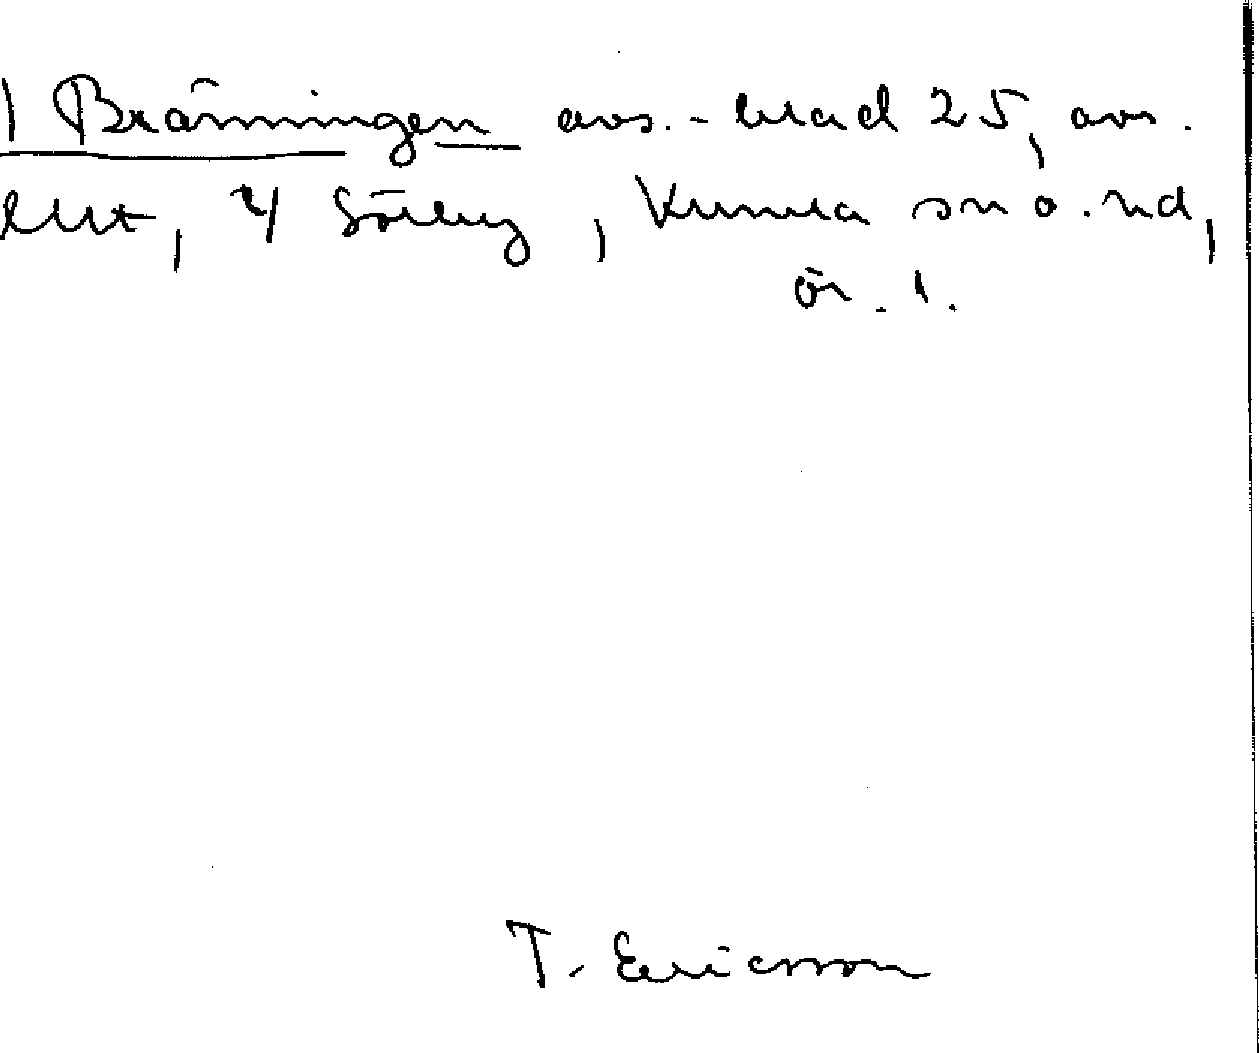 ) Bränningen avs.-blad 25, avs.
, 4 Sörby, Kumla sn o. hd,
ör. l.
T. Ericsson